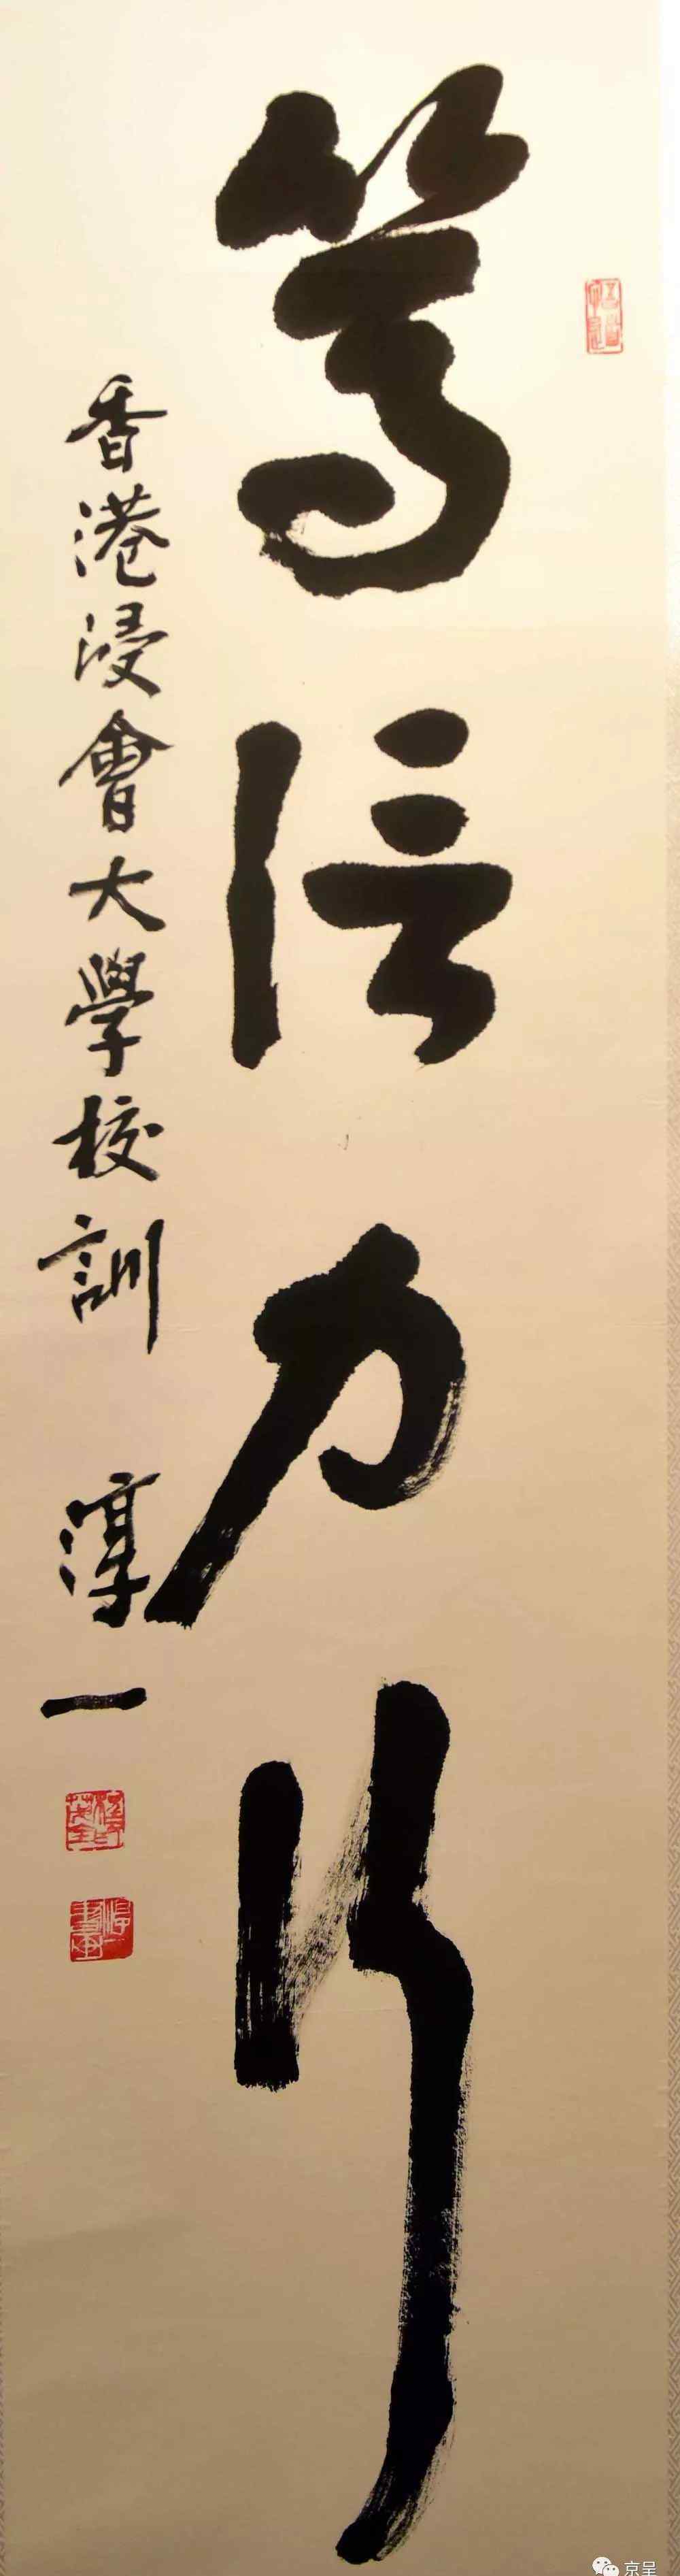 篤信力行
香港浸會大學校訓 淳一
京呈